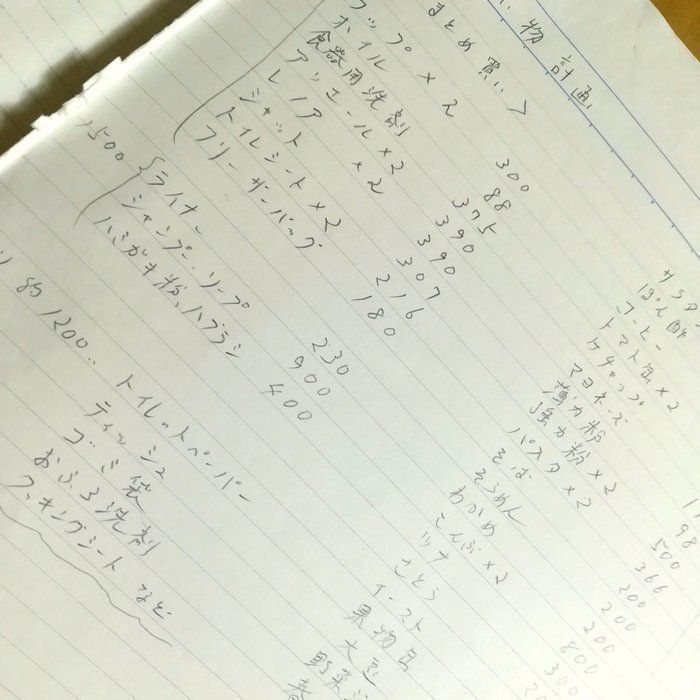 物計画
まとめ買い>
ラップ×2 300
ホイル 88
食器用洗剤 375
アリエール×2 390
レノア×2 390
ジャット 307
トイレシート×2 216
フリーザーバッグ 180
1500
ライナー 230
シャンプー、ソープ 900
ハミガキ粉、ハブラシ 400
1200..
トイレットペーパー
ティッシュ
ゴミ袋
おふろ洗剤
クッキングシート など
サラダ
コーヒー
トマト缶×2
ケチャップ
マヨネーズ
薄力粉
強力粉×2
パスタ×2
そば
そうめん
わかめ
こんぶ×2
ツナ
さとう
イースト
果物缶
大豆
野菜
98
500
366
200
200
800